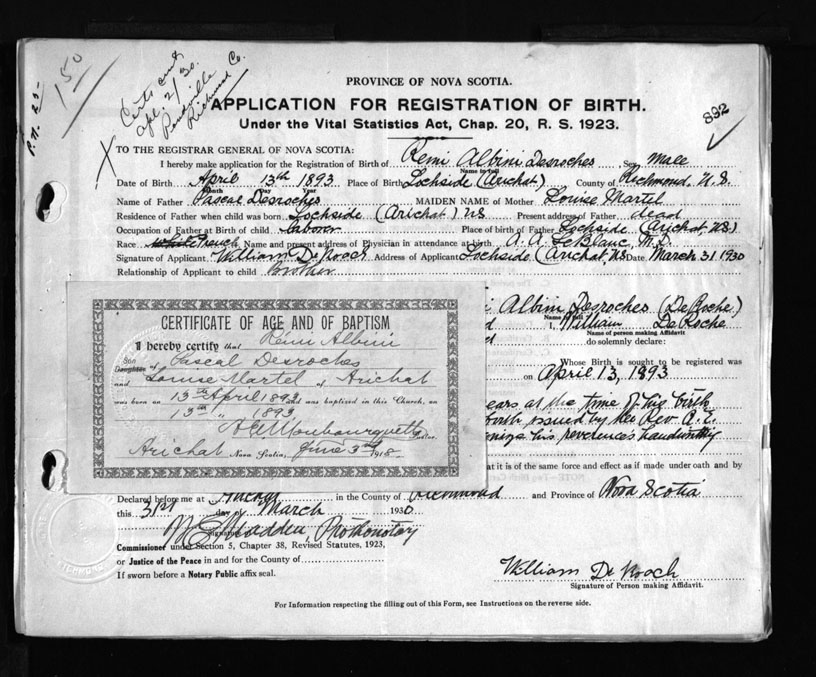 1 50
P.N. 25-
Certs sent
Apl. 2/30.
Richmond Co.
PROVINCE OF NOVA SCOTIA.
APPLICATION FOR REGISTRATION OF BIRTH.
892
Under the Vital Statistics Act, Chap. 20, R. S. 1923.
TO THE REGISTRAR GENERAL OF NOVA SCOTIA:
I hereby make application for the Registration of Birth of Remi Albini Desroches Sex Male
Name in full
Date of Birth April 13th 1893 Place of Birth Lochside (Arichat) County of Richmond, N.S.
Month Day Year
Name of Father Pascal Desroches MAIDEN NAME of Mother Louise Martel
Residence of Father when child was born Lochside (Arichat) NS Present address of Father dead
Occupation of Father at Birth of child laborer Place of birth of Father Lochside (Arichat, NS.)
Race White French Name and present address of Physician in attendance at birth A. A. LeBlanc, M.D.
Signature of Applicant William DeRoach Address of Applicant Lochside (Arichat, NS Date March 31 1930
Relationship of Applicant to child Brother
i Albini Desroches (DeRoche)
Name in full
CERTIFICATE OF AGE AND OF BAPTISM
I hereby certify that Remi Albini
Son of Pascal Desroches
Daughter
and Louise Martel of Arichat
was born on 13th April 1893 and was baptised in this Church, on
13th " 1893
A E Mombourquette Pastor.
Arichat Nova Scotia, June 3rd 1918
I, William DeRoche
Name of person making Affidavit
do solemnly declare:
Whose Birth is sought to be registered was
on April 13, 1893
ears at the time of his birth
forth issued by the Rev. A. E.
his reverence's handwriting
at it is of the same force and effect as if made under oath and by
Declared before me at Arichat in the County of Richmond and Province of Nova Scotia
this 31st day of March 1930
M E Madden, Prothonotary
Commissioner under Section 5, Chapter 38, Revised Statutes, 1923,
or Justice of the Peace in and for the County of
If sworn before a Notary Public affix seal.
William DeRoach
Signature of Person making Affidavit.
For Information respecting the filling out of this Form, see Instructions on the reverse side.